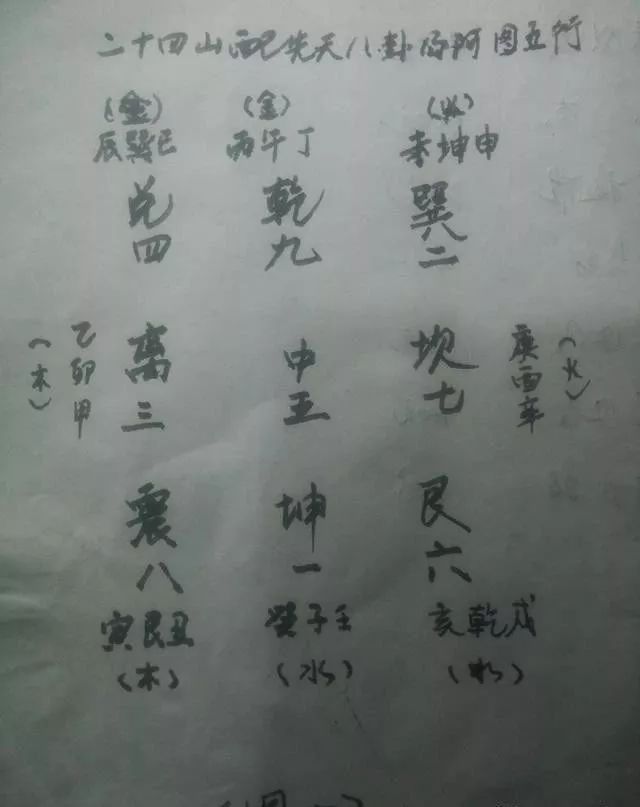 二十四山配先天八卦后河图五行
(金) (金) (火)
辰巽巳 丙午丁 未坤申
兑 乾 巽
四 九 二
乙卯甲
(木)
离 中 坎
三 五 七
庚酉辛
(火)
震 坤 艮
八 一 六
寅艮丑 癸子壬 亥乾戌
(木) (水) (水)